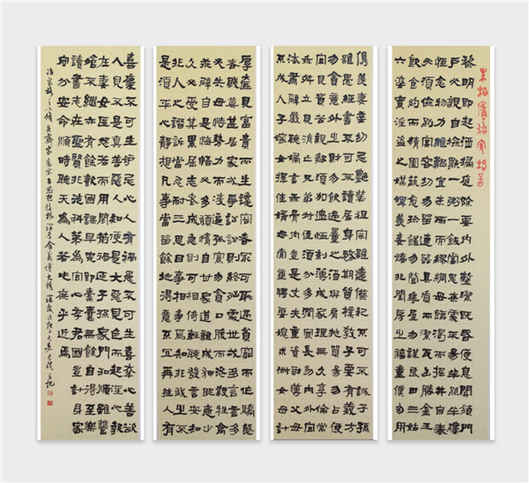 朱柏廬治家格言
黎明即起洒掃庭除要內外整潔既昏便息關鎖門
户必親自檢點一粥一飯當思來處不易半絲半縷
恒念物力維艱宜未雨而綢繆毋臨渴而掘井自奉
必須儉約宴客切勿留連器具質而潔瓦缶勝金玉
飲食約而精園蔬愈珍饈勿營華屋勿謀良田三姑
六婆實淫盜之媒婢美妾嬌非閨房之福童僕勿用
俊美妻妾切忌艷妝祖宗雖遠祭祀不可不誠子孫
雖愚經書不可不讀居身務期質樸教子要有義方
勿貪意外之財勿飲過量之酒與肩挑貿易勿佔便
宜見貧苦親鄰須加溫恤刻薄成家理無久享倫常
乖舛立見消亡兄弟叔侄須分多潤寡長幼內外宜
法肅辭嚴聽婦言乖骨肉豈是丈夫重資財薄父母
不成人子嫁女擇佳婿毋索重聘娶媳求淑女毋計
厚奩見富貴而生諂容者最可恥遇貧窮而作驕態
者賤莫甚居家戒爭訟訟則終凶處世戒多言言多
必失毋恃勢力而凌逼孤寡勿貪口腹而恣殺生禽
乖僻自是悔誤必多頹惰自甘家道難成狎昵惡少
久必受其累屈志老成急則可相依輕聽發言安知
非人之譖訴當忍耐三思因事相爭焉知非我之不
是須平心靜想凡事當留餘地得意不宜再往人有
喜慶不可生妒忌心人有禍患不可生喜幸心善欲
人見不是真善惡恐人知便是大惡見色而起淫心報
在妻女匿怨而用暗箭禍延子孫家門和順雖饔
飧不繼亦有餘歡國課早完即囊橐無餘自得至樂
讀書志在聖賢非徒科第為官心存君國豈計身家
守分安命順時聽天為人若此庶乎近焉